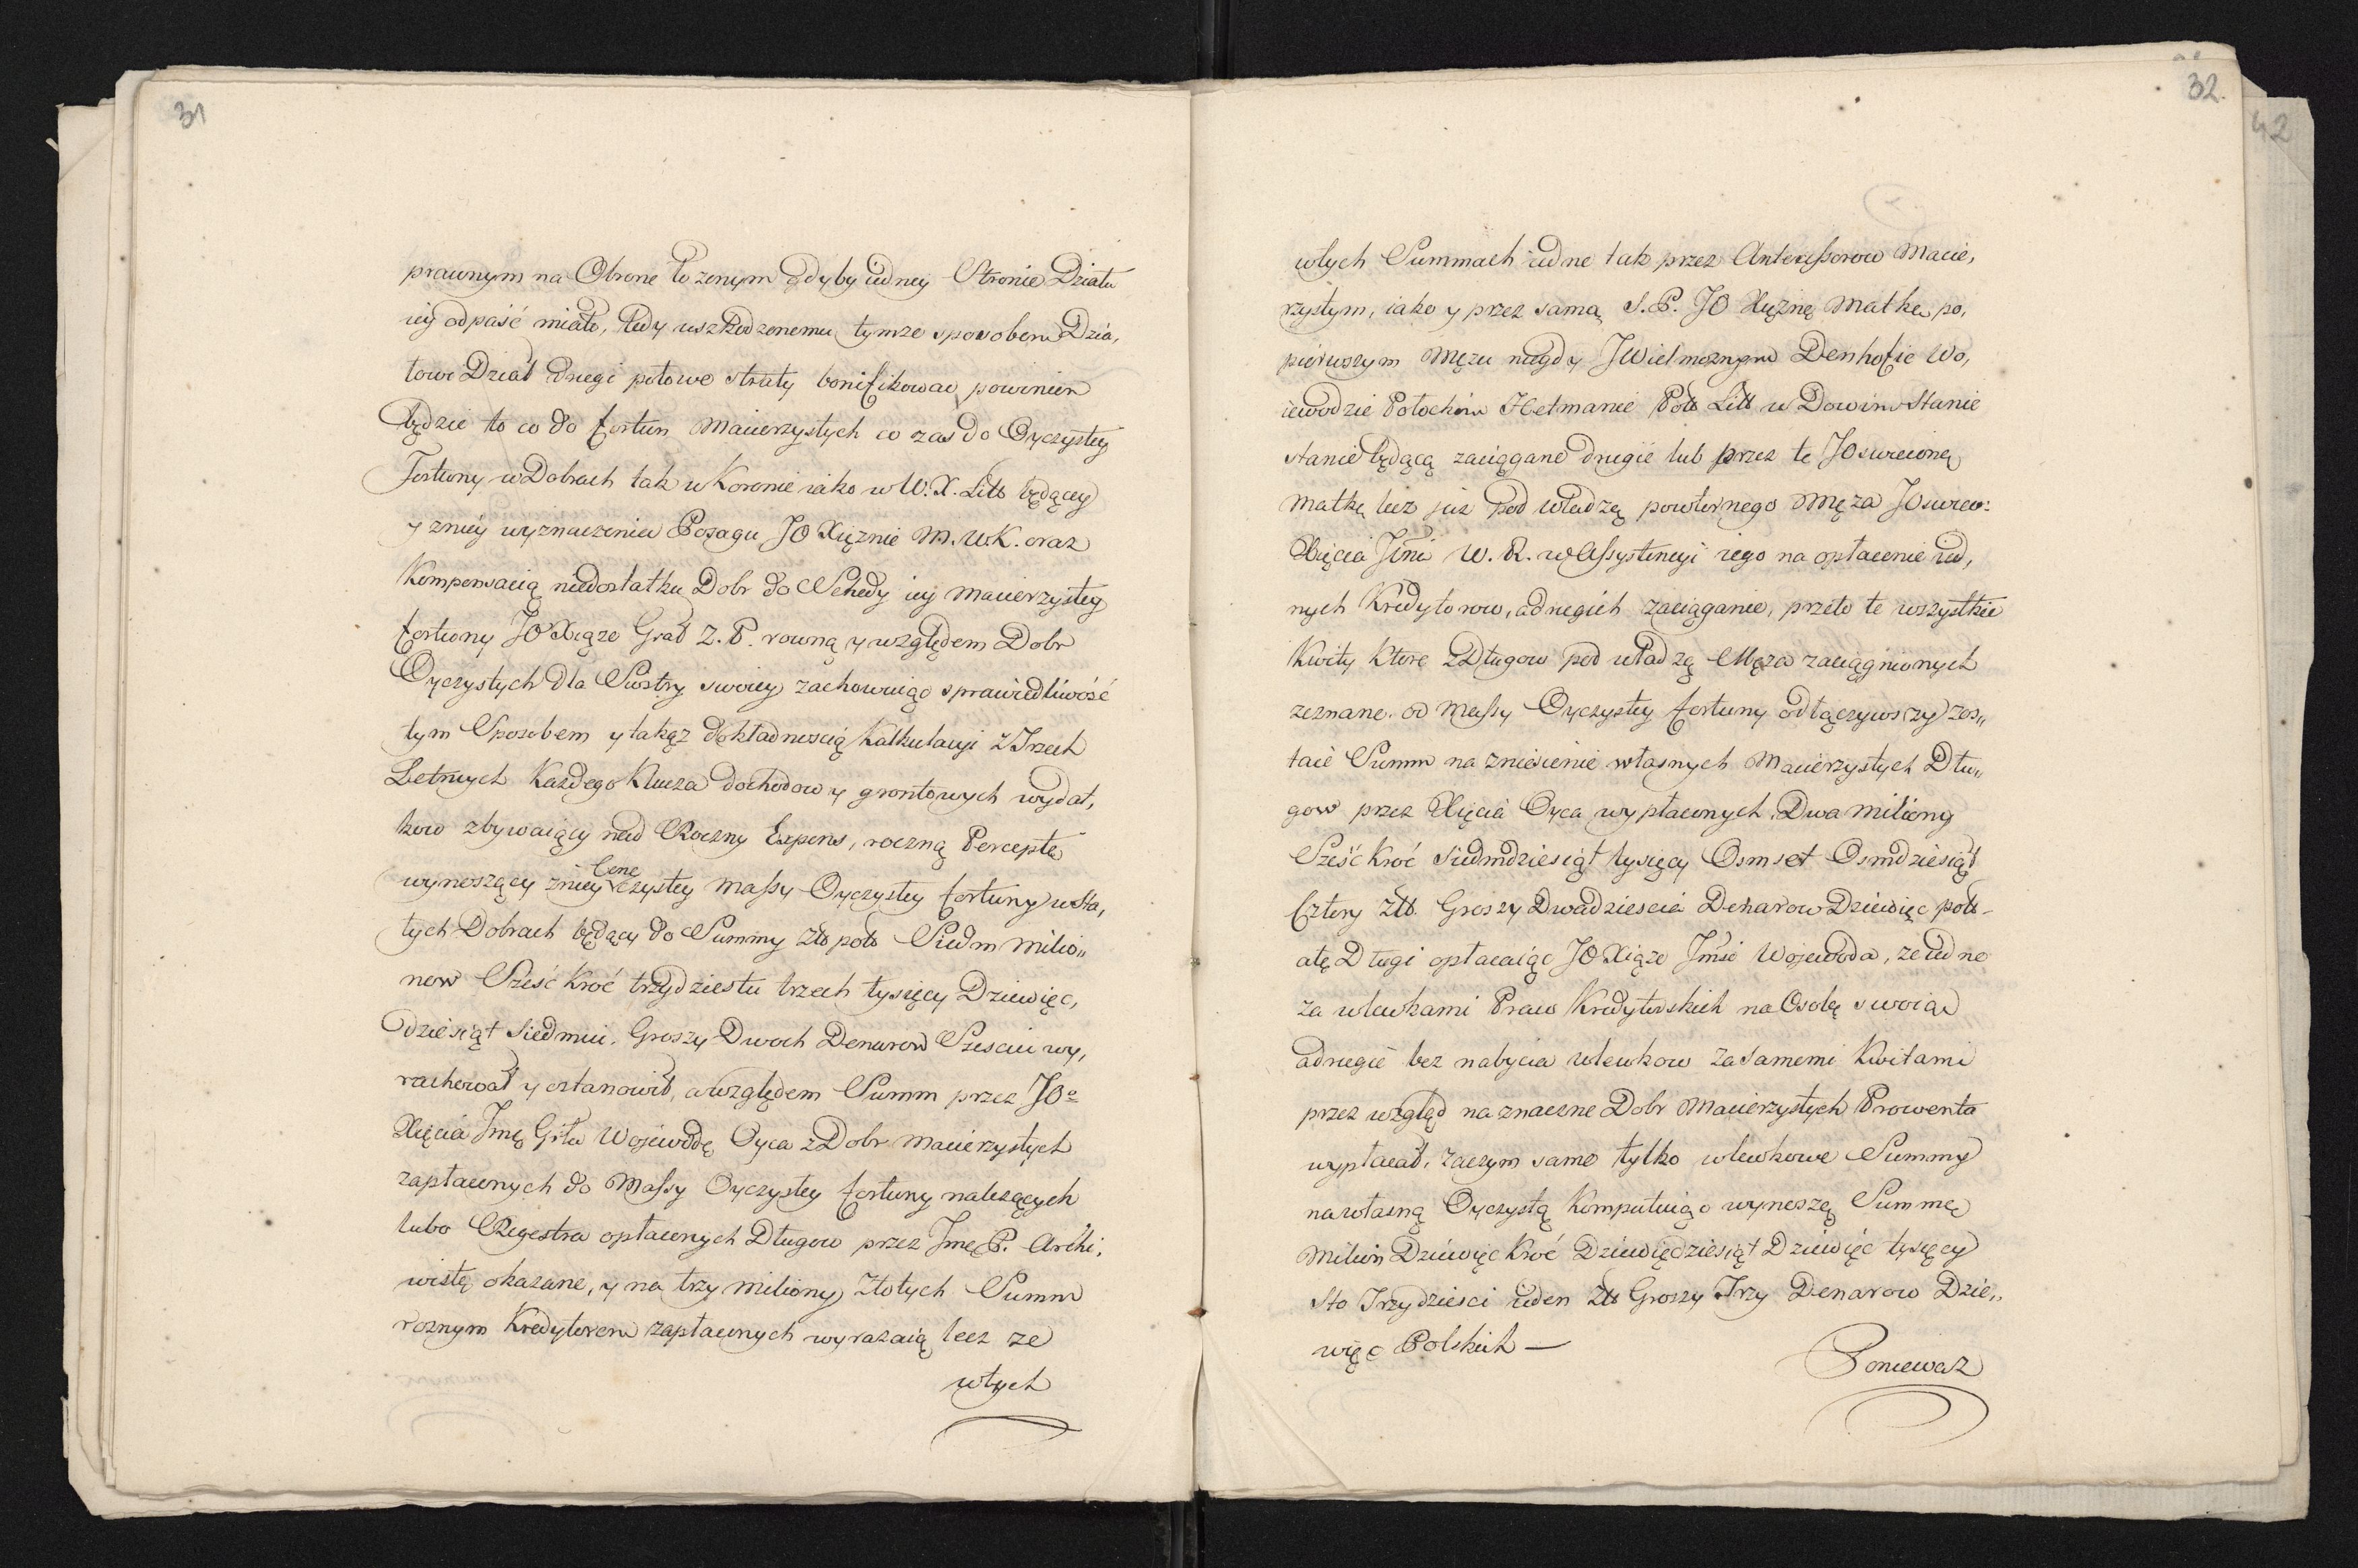 31
prawnym na Obrone łozonym gdyby iedney Stronie Działu
iey odpaść miało, tedy uszkodzonemu tymze sposobem Dzia,
łowi Dział drugi połowe straty bonifikowac powinien
będzie to co do fortun Macierzystych co zas do Oyczystey
Fortuny w Dobrach tak w Koronie iako w W. X. Litt będącey
y zniey wyznaczenia Posagu JO Xięznie M. W. K. oraz
Kompensacią niedostatku Dobr do Schedy iey Macierzystey
fortuny JO Xiąze Grał Z. P. rowną y względem Dobr
Oyczystych dla Siostry swoiey zachowuiąc sprawiedliwość
tym Sposobem y takąz dokładnoscią Kalkulacyi z Trzech
Letnych Kazdego Klucza dochodow y grontowych wydat,
kow zbywaiący nad Roczny Expens, roczną Perceptę
wynoszący zniey Cene czystey Massy Oyczystey fortuny w sta,
tych Dobrach będący do Summy Zło poło Siedm milio„
now Sześć kroć trzydziestu trzech tysięcy Dziewięc,
dziesiąt Siedmiu. Groszy Dwoch Denarow Szesciu wy,
rachował y ostanowił, a względem Summ przez JOo
Xięcia Jmę Głu Wojewodę Oyca z Dobr Macierzystych
zapłaconych do Massy Oyczystey fortuny nalezących
lubo Regestra opłaconych Długow przez Jmę P. Archi,
wistę okazane, y na trzy miliony Złotych Summ
roznym Kredytorem zapłaconych wyrazaią lecz ze
wtych
32
42
wtych Summach iedne tak przez Antecessorow Macie,
rzystym, iako y przez samą S. P. JO Xięznę Matkę po,
pierwszym Męzu niegdy JWielmoznym Denhofie Wo,
iewodzie Połockim Hetmanie Poło Litt w Dowim Stanie
stanie będącą zaciągane drugie lub przez te JOswieconą
Matkę lecz juz pod władzą powtornego Męza JOswiec:
Xięcia Jmci W. R. w Assystencyi iego na opłacenie ied,
nych Kredytorow, a drugich zaciąganie, przeto te wszystkie
Kwity Ktore z Długow pod władzą Męza zaciągnionych
zeznane. od Massy Oyczystey fortuny odłączywszy zos„
taie Summ na zniesienie własnych Macierzystych Dłu„
gow przez Xięcia Oyca wypłaconych. Dwa miliony
Sześć kroć siedmdziesiąt tysięcy Osmset Osmdziesiąt
Cztery Złł. Groszy Dwadziescia Denarow Dziewięc poło-
atę Długi opłacaiąc JO Xiąze Jmść Wojewoda, ze iedne
za wlewkami Praw Kredytorskich na Osobę swoią
a drugie bez nabycia wlewkow za samemi Kwitami
przez wzgląd na znaczne Dobr Macierzystych Prowenta
wypłacał, zaczym same tylko wlewkowe Summy
na własną Oyczystą Komputuiąc wynoszą Summę
Milion Dziewięc kroć Dziewiędziesiąt Dziewięc tysięcy
Sto Trzydziesci ieden Zło Groszy Trzy Denarow Dzie„
więc Polskich —
Poniewasz